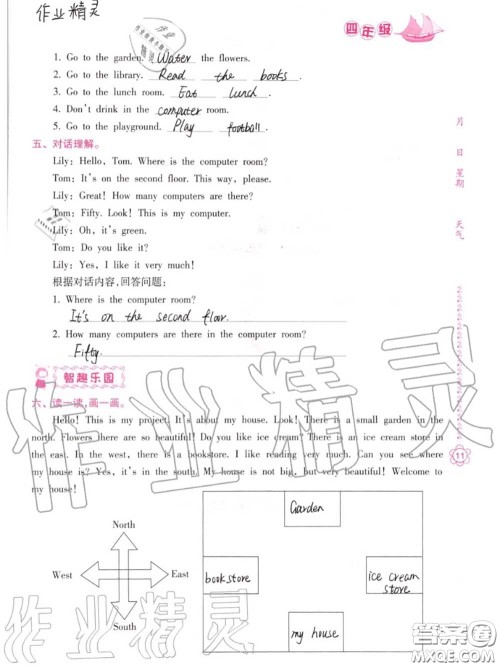 作业精灵
四年级
1. Go to the garden. Water the flowers.
2. Go to the library. Read the books.
3. Go to the lunch room. Eat lunch.
4. Don't drink in the computer room.
5. Go to the playground. Play football.
五、对话理解。
Lily: Hello, Tom. Where is the computer room?
Tom: It's on the second floor. This way, please.
Lily: Great! How many computers are there?
Tom: Fifty. Look! This is my computer.
Lily: Oh, it's green.
Tom: Do you like it?
Lily: Yes, I like it very much!
根据对话内容,回答问题:
1. Where is the computer room?
It's on the second floor.
2. How many computers are there in the computer room?
Fifty.
智趣乐园
六、读一读,画一画。
Hello! This is my project. It's about my house. Look! There is a small garden in the
north. Flowers there are so beautiful! Do you like ice cream? There is an ice cream store
in the east. In the west, there is a bookstore. I like reading very much. Can you see where
my house is? Yes, it's in the south. My house is not big, but very beautiful! Welcome to
my house!
North
West
East
South
Garden
bookstore
ice cream store
my house
月 日 星期 天气
11
作业精灵
作业精灵
答案圈
MXQE.COM